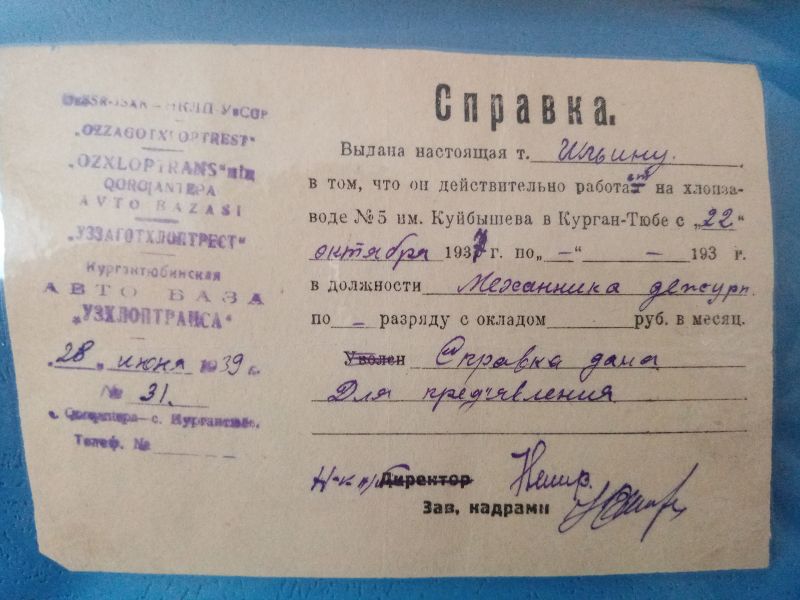 НКЛП-УзССР
„OZZAGOTXLOPTREST“
„OZXLOPTRANS“niņ
QORƢANTEPA
AVTO BAZASI
„УЗЗАГОТХЛОПТРЕСТ“
Кургантюбинская
АВТО БАЗА
„УЗХЛОПТРАНСА“
„28“ июня 1939 г.
№ 31.
Телеф. №
Справка.
Выдана настоящая т. Ильину.
в том, что он действительно работает на хлопза-
воде №5 им. Куйбышева в Курган-Тюбе с „22“
октября 1937 г. по „–“ – 193 г.
в должности Механника дежурн.
по – разряду с окладом руб. в месяц.
Уволен Справка дана
Для предъявления
Директор
Зав. кадрами